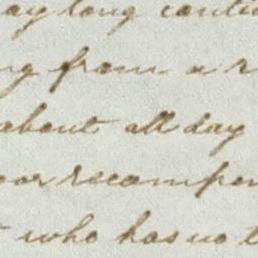 ay long contin
ng from a r
about all day
oor recompen
t who has no t